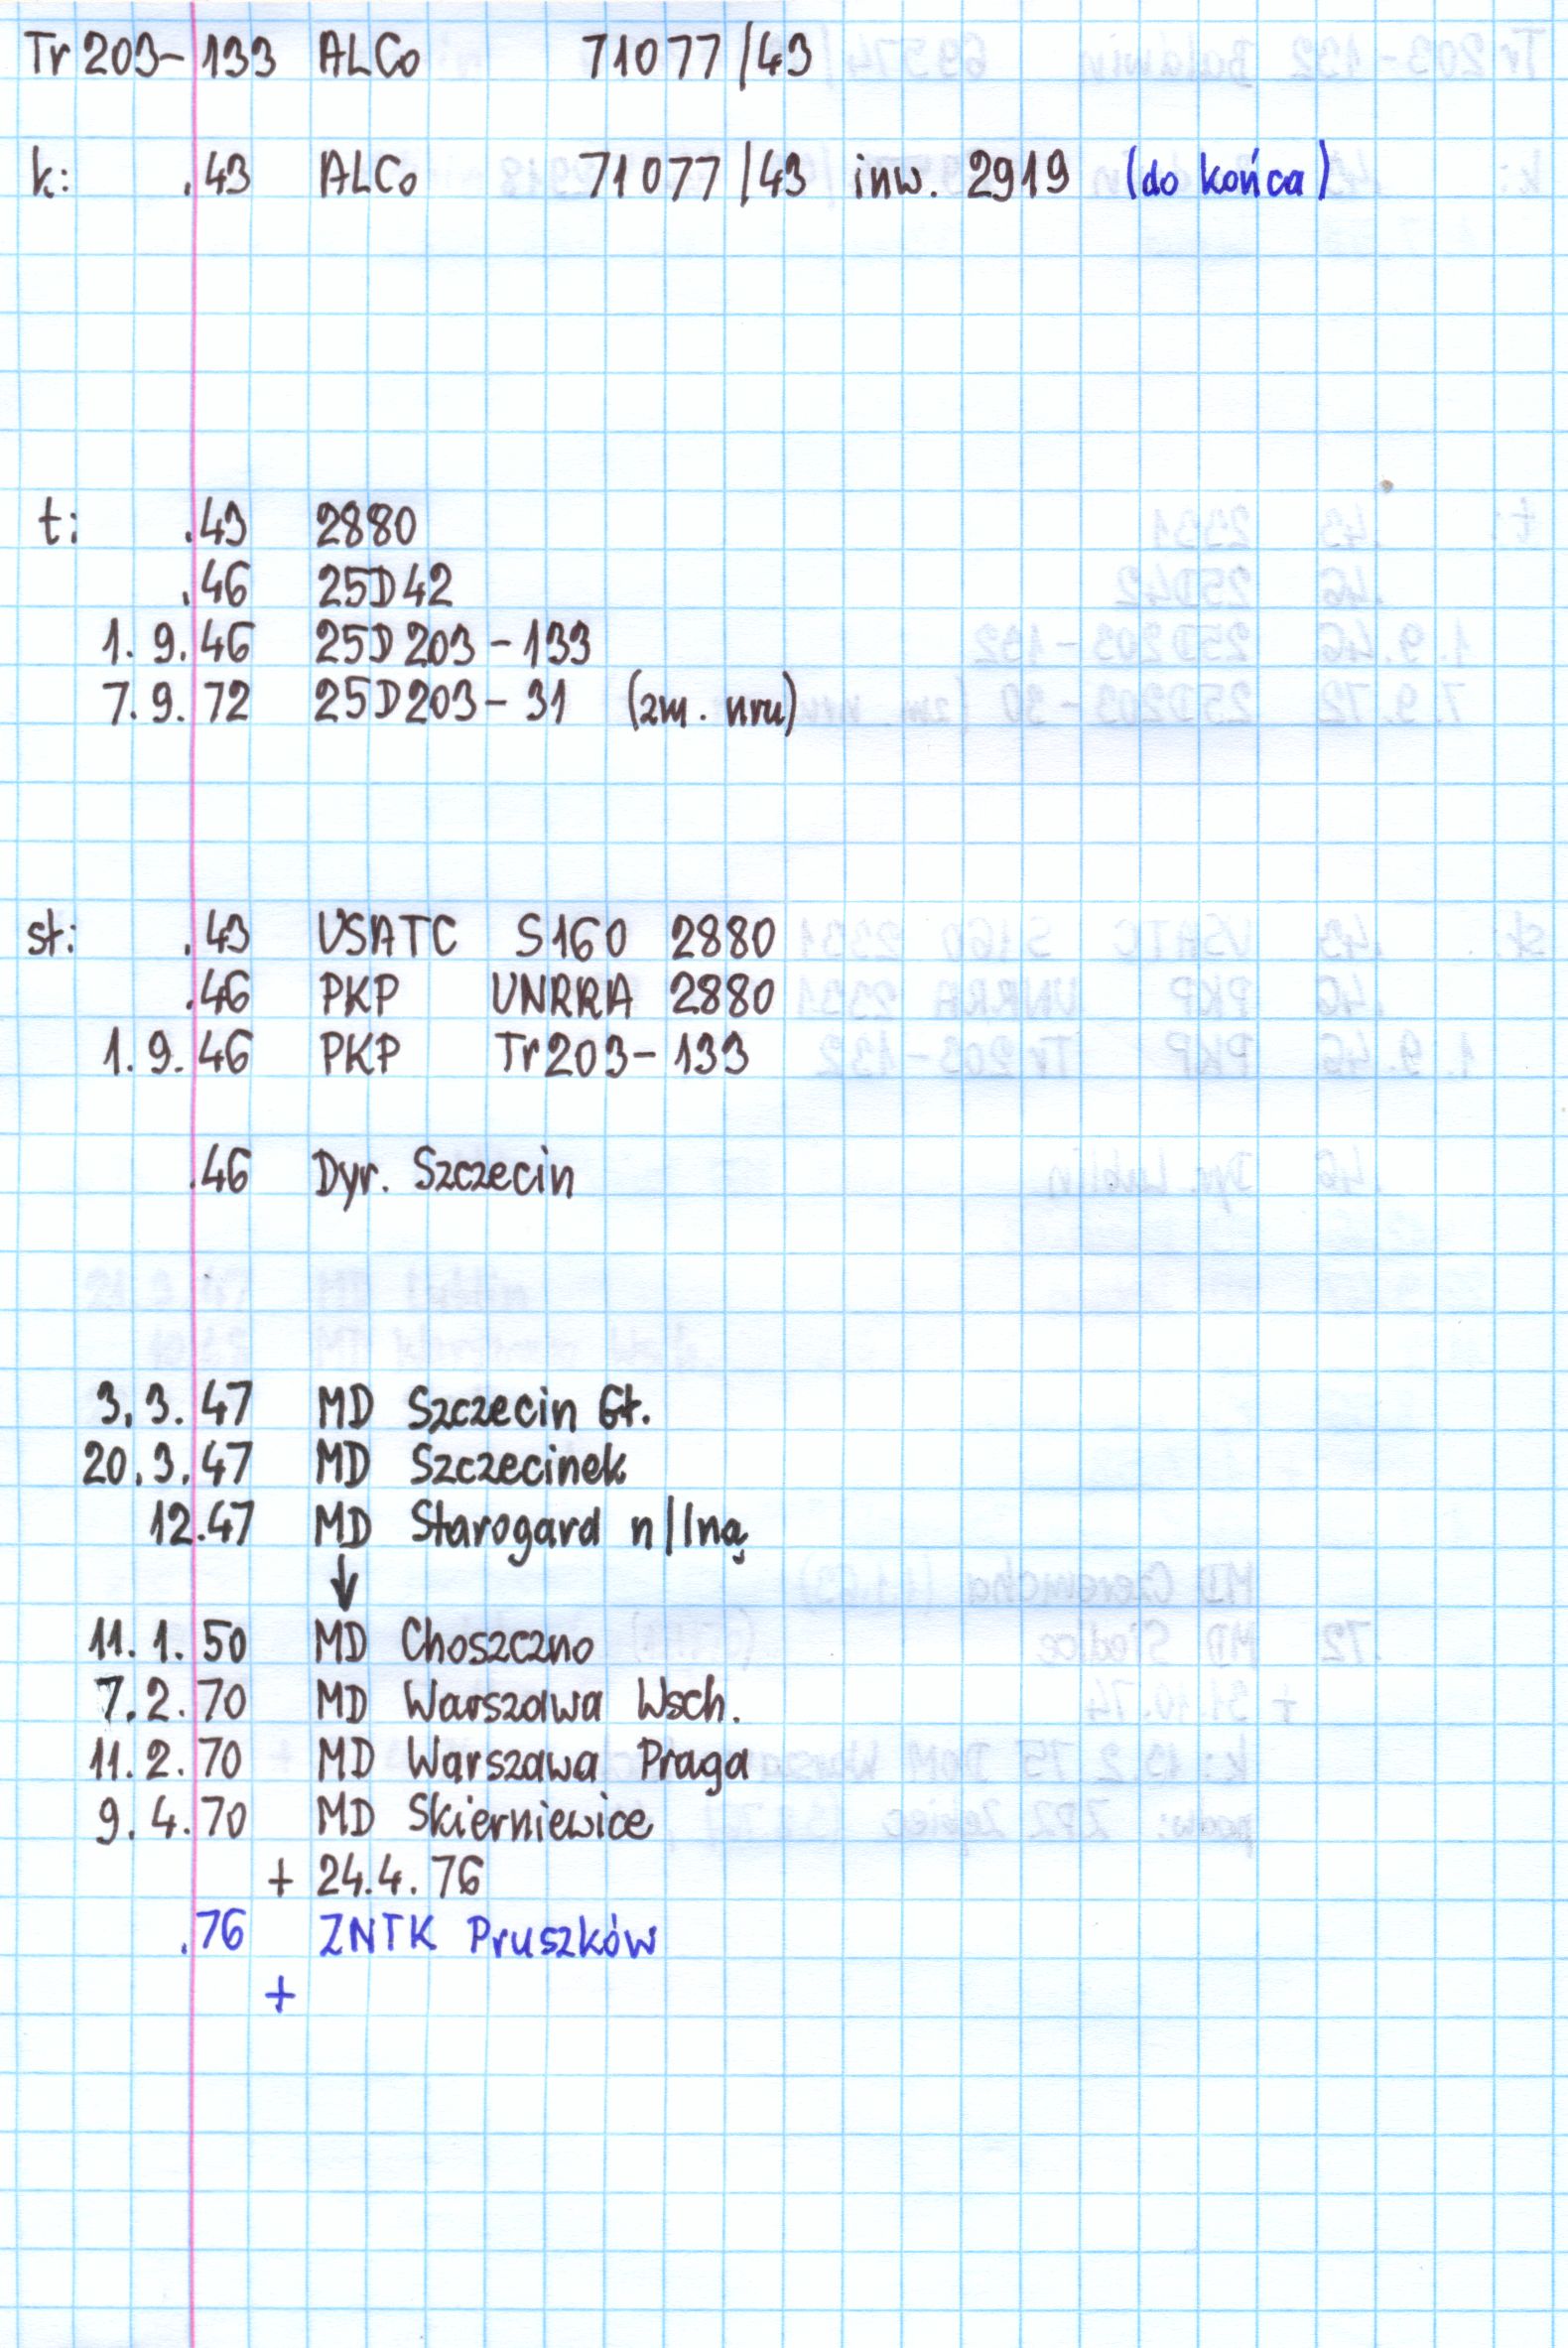 Tr 203-133 ALCo 71077/43
k: .43 ALCo 71077/43 inw. 2919 (do końca)
t: .43 2880
.46 25D42
1.9.46 25D203-133
7.9.72 25D203-31 (zm. nru)
st: .43 USATC S160 2880
.46 PKP UNRRA 2880
1.9.46 PKP Tr203-133
.46 Dyr. Szczecin
3.3.47 MD Szczecin Gł.
20.3.47 MD Szczecinek
12.47 MD Starogard n/Iną
↓
11.1.50 MD Choszczno
7.2.70 MD Warszawa Wsch.
11.2.70 MD Warszawa Praga
9.4.70 MD Skierniewice
+ 24.4.76
.76 ZNTK Pruszków
+